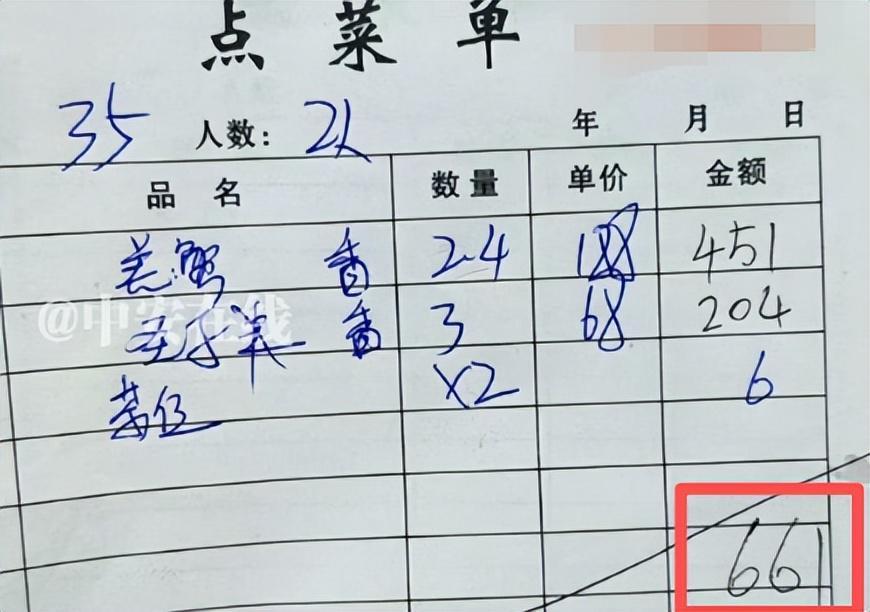 点菜单
35 人数: 2人 年 月 日
品名 数量 单价 金额
羔蟹 香 2.4 188 451
香 3 68 204
@中安在线
茶位 x2 6
661